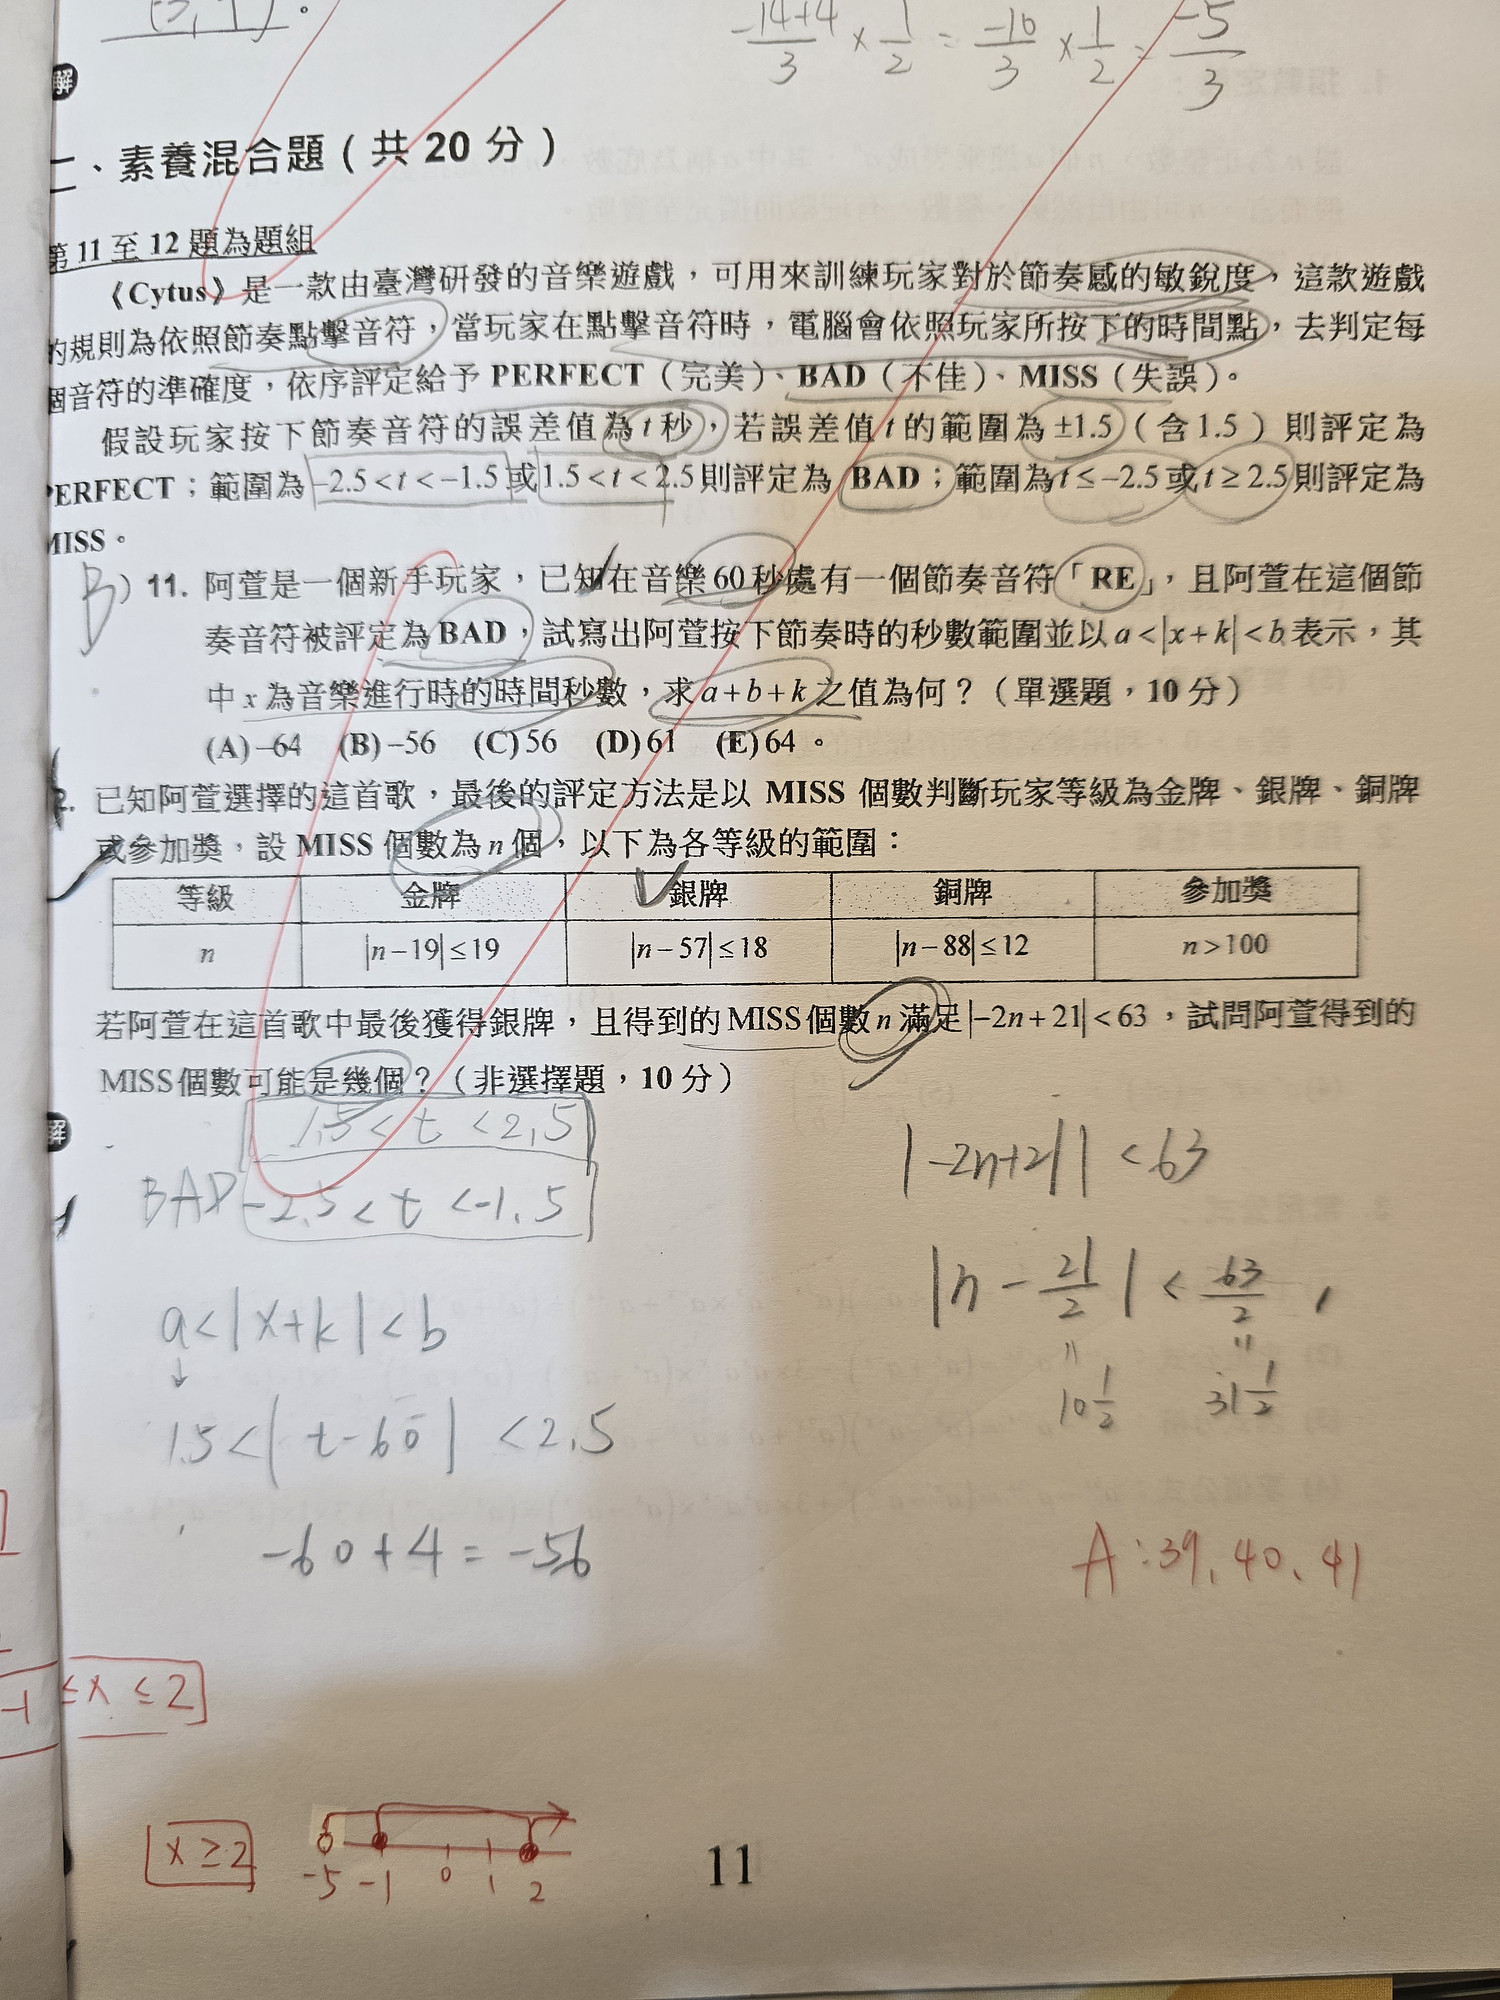 -14+4/3 × 1/2 = -10/3 × 1/2 = -5/3
解
二、素養混合題(共 20 分)
第 11 至 12 題為題組
《Cytus》是一款由臺灣研發的音樂遊戲,可用來訓練玩家對於節奏感的敏銳度,這款遊戲
的規則為依照節奏點擊音符,當玩家在點擊音符時,電腦會依照玩家所按下的時間點,去判定每
個音符的準確度,依序評定給予 PERFECT(完美)、BAD(不佳)、MISS(失誤)。
假設玩家按下節奏音符的誤差值為 t 秒,若誤差值 t 的範圍為 ±1.5(含 1.5)則評定為
PERFECT;範圍為 -2.5 < t < -1.5 或 1.5 < t < 2.5 則評定為 BAD;範圍為 t ≤ -2.5 或 t ≥ 2.5 則評定為
MISS。
B ) 11. 阿萱是一個新手玩家,已知在音樂 60 秒處有一個節奏音符「RE」,且阿萱在這個節
奏音符被評定為 BAD,試寫出阿萱按下節奏時的秒數範圍並以 a < |x + k| < b 表示,其
中 x 為音樂進行時的時間秒數,求 a + b + k 之值為何?(單選題,10 分)
(A) -64 (B) -56 (C) 56 (D) 61 (E) 64。
2. 已知阿萱選擇的這首歌,最後的評定方法是以 MISS 個數判斷玩家等級為金牌、銀牌、銅牌
或參加獎,設 MISS 個數為 n 個,以下為各等級的範圍:
等級 金牌 銀牌 銅牌 參加獎
n |n-19| ≤ 19 |n-57| ≤ 18 |n-88| ≤ 12 n > 100
若阿萱在這首歌中最後獲得銀牌,且得到的 MISS 個數 n 滿足 |-2n+21| < 63,試問阿萱得到的
MISS 個數可能是幾個?(非選擇題,10 分)
解
1.5 < t < 2.5
BAD -2.5 < t < -1.5
a < |x+k| < b
↓
1.5 < |t-60| < 2.5
-60+4 = -56
|-2n+21| < 63
|n - 21/2| < 63/2
10 1/2 31 1/2
A: 39、40、41
-1 ≤ x ≤ 2
x ≥ 2
-5 -1 0 1 2
11